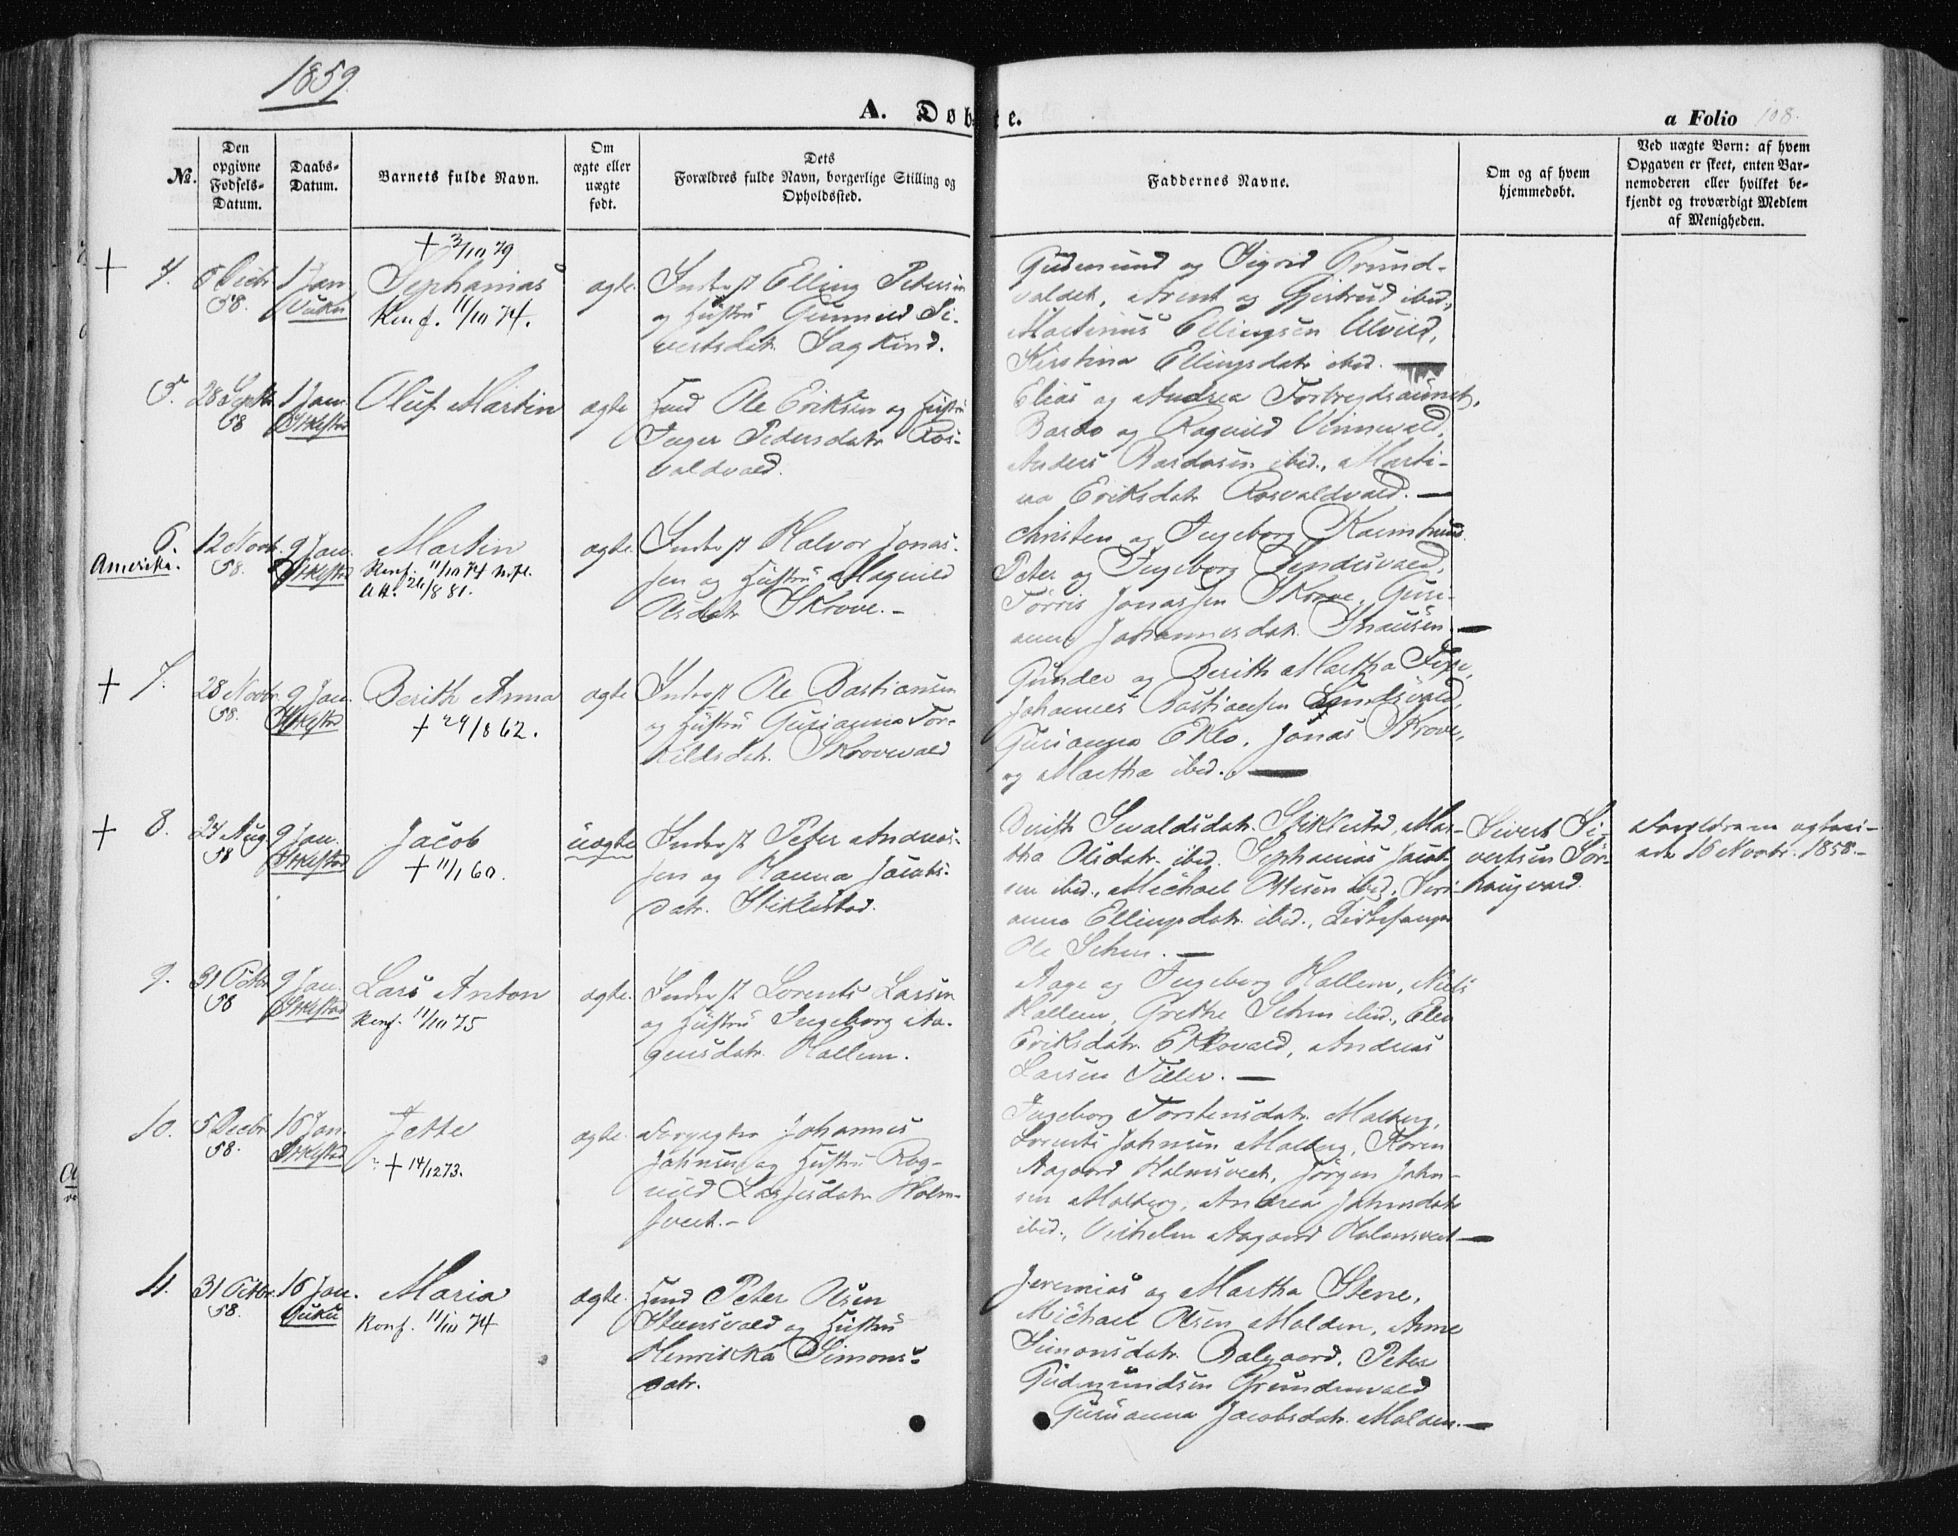 1859.
A. Døbte.
a Folio 108.
No.
Den opgivne Fødsels-Datum.
Daabs-Datum.
Barnets fulde Navn.
Om ægte eller uægte født.
Dets Forældres fulde Navn, borgerlige Stilling og Opholdssted.
Faddernes Navne.
Om og af hvem hjemmedøbt.
Ved uægte Børn: af hvem Opgaven er skeet, enten Barnemoderen eller hvilket bekjendt og troværdigt Medlem af Menigheden.
+ 4. 5 Decbr 58. 1 Jan Vuku
+ 3/10 79
Sephanias
Konf. 11/10 74.
ægte.
Inderst Elling Petersen
og Hustru Gunnild Si-
vertsdatr. Sagkind.
Gudmund og Sigrid Grund-
valdet, Arent og Gjertrud ibid.,
Martinus Ellingsen Ulvild,
Kirstina Ellingsdatr ibid. —
5. 28 Septbr 58 1 Jan. Stiklestad
Oluf Martin
ægte
Husd Ole Eriksen og Hustru
Inger Pedersdatr Ros-
valdvald.
Elias og Andrea Torbregdsaunet,
Bardo og Ragnild Vinnevald,
Anders Bardosen ibid., Marti-
na Eriksdatr Rosvaldvald. —
6. 12 Novbr. 58. 9 Jan. Stiklestad
Amerika.
Martin
Konf. 11/10 74
Att. 26/8 81.
ægte.
Inderst Halvor Jonas-
sen og Hustru Magnild
Olsdatr Skrove. -
Christen og Ingeborg
Peter og Ingeborg
Tørris Jonassen Skrove, Guri-
anna Johannesdatr. —
+ 7. 28 Novbr 58. 9 Jan. Stiklestad
Berith Anna
+ 29/8 62.
ægte
Inderst Ole Bastiansen
og Hustru Gurianna Tor-
kildsdatr. Skrovevald
Gunder og Berith Martha
Johannes Bastiansen
Gurianna Eklo, Jonas Skrove,
og Martha ibid. —
+ 8. 24 Aug 58 9 Jan. Stiklestad
Jacob
+ 11/1 60.
uægte
Inderst Peter Andreas-
sen og Hanna Jacobs-
datr. Stiklestad.
Berith Sevaldsdatr. Stiklestad, Mar-
tha Olsdatr. ibid. Sephanias Jacob-
sen ibid., Michael Olsen ibid., Seri-
anna Ellingsdatr. ibid., Kirkesanger
Ole Schem. —
Sivert Si-
vertsen Sør-
haugvard.
Forældrene ægtevi-
ede 16 Novbr. 1858. -
9. 31 Octbr 58 9 Jan. Stiklestad
Lars Anton
Konf. 11/10 75
ægte.
Inderst Lorents Larsen
og Hustru Ingeborg Aa-
gensdatr. Hallem.
Aage og Ingeborg Hallem, Niels
Hallem, Grethe Schem ibid., Elen
Eriksdatr. Eklovald, Andreas
Larsen Tiller. —
10. 5 Decbr 58. 16 Jan. Stiklestad
Jette
+ 14/12 73.
ægte.
Forpagter Johannes
Johnsen og Hustru Rag-
nild Larsesdatr. Holm-
svedt. -
Ingeborg Torstensdatr. Molberg,
Lorents Johnsen Molberg, Karen
Aagaard Holmsvedt, Jørgen John-
sen Molberg, Andrea Johnsdatr.
ibid., Vilhelm Aagaard Holmsvedt —
11. 31 Octbr. 58. 16 Jan. Vuku
Maria
Konf. 11/10 74
ægte.
Husd Peter Olsen
Steensvald og Hustru
Henrikka Simons-
datr.
Jeremias og Martha Stene,
Michael Olsen Molden, Anne
Simonsdatr. Balgaard, Peter
Gudmundsen Grundenvald
Gurianna Jacobsdatr. Molden. —